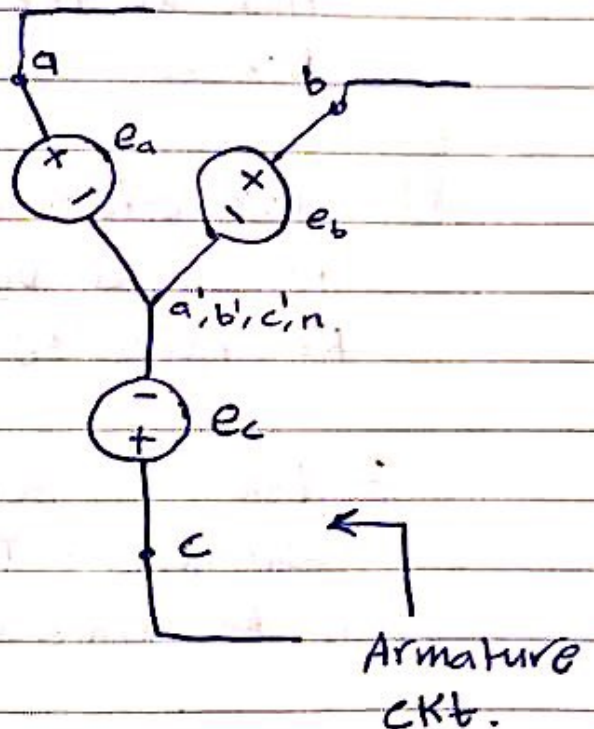 a
b
ea
+
-
+
-
eb
a', b', c', n.
-
+
ec
c
Armature
ckt.